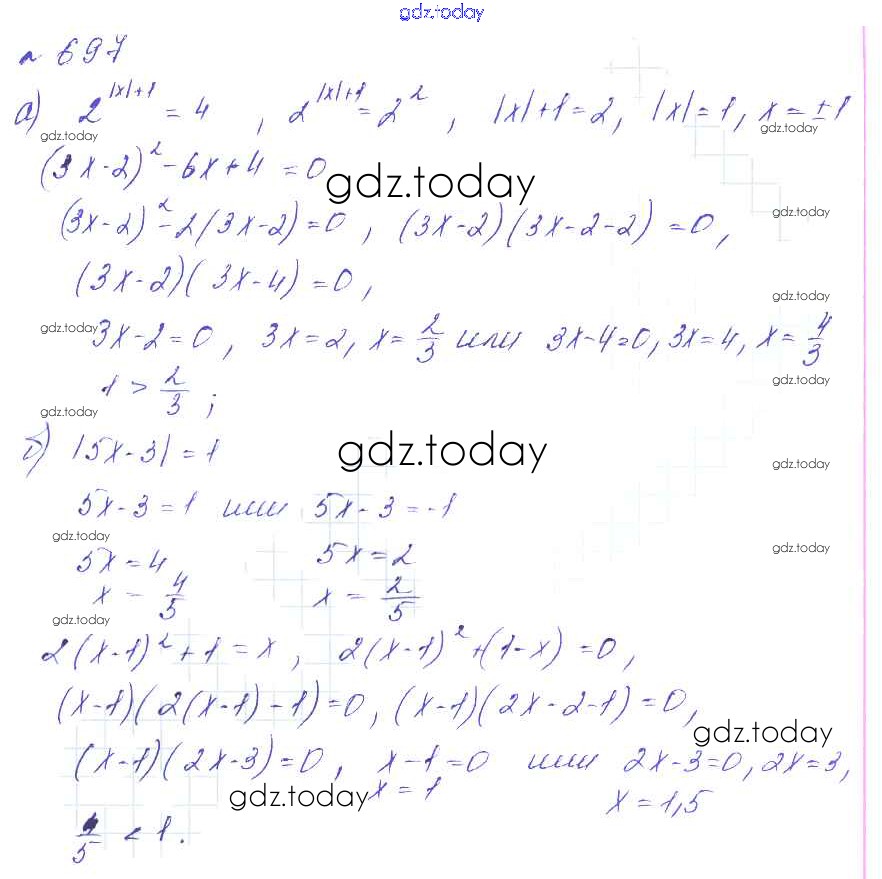 gdz.today
№ 697
а) 2^{|x|+1} = 4, 2^{|x|+1} = 2^2, |x|+1=2, |x|=1, x=±1
gdz.today gdz.today
(3x-2)^2-6x+4=0
gdz.today
gdz.today
(3x-2)^2-2(3x-2)=0, (3x-2)(3x-2-2)=0,
(3x-2)(3x-4)=0,
gdz.today
gdz.today
3x-2=0, 3x=2, x=2/3 или 3x-4=0, 3x=4, x=4/3
1 > 2/3;
gdz.today
gdz.today
б) |5x-3|=1
gdz.today
gdz.today
5x-3=1 или 5x-3=-1
gdz.today gdz.today
5x=4 5x=2
x=4/5 x=2/5
gdz.today
2(x-1)^2+1=x, 2(x-1)^2+(1-x)=0,
(x-1)(2(x-1)-1)=0, (x-1)(2x-2-1)=0,
gdz.today
(x-1)(2x-3)=0, x-1=0 или 2x-3=0, 2x=3,
gdz.today x=1 x=1,5
4/5 < 1.